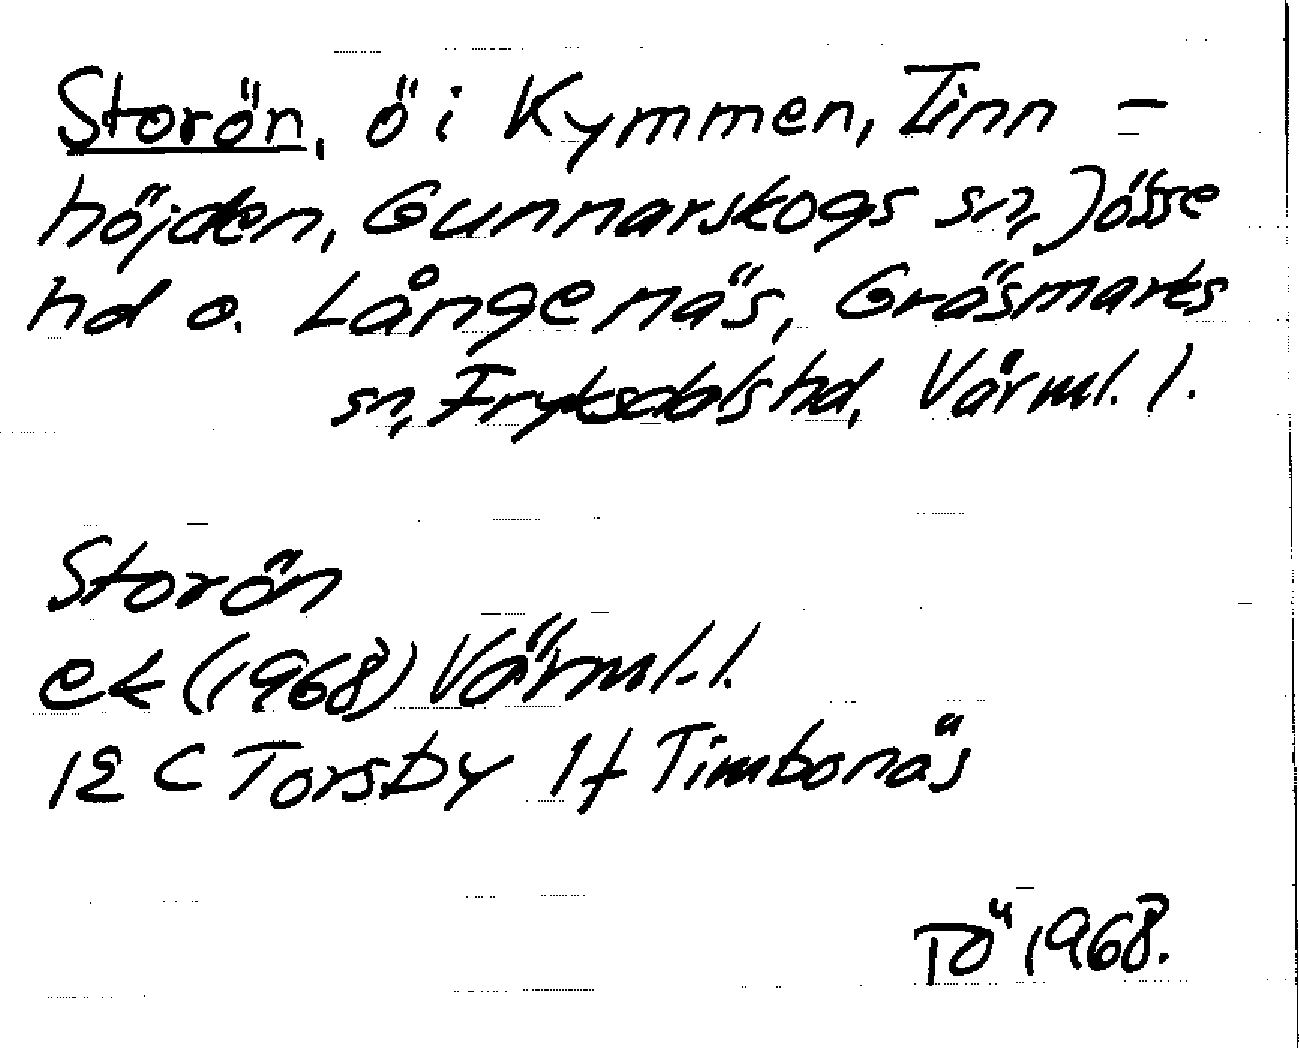 Storön, ö i Kymmen, Linn-
höjden, Gunnarskogs sn, Jösse
hd o. Långenäs, Gräsmarks
sn, Fryksdals hd, Värml. l.
Storön
ek (1968) Värml. l.
12 C Torsby 1f Timbonäs
TÖ 1968.